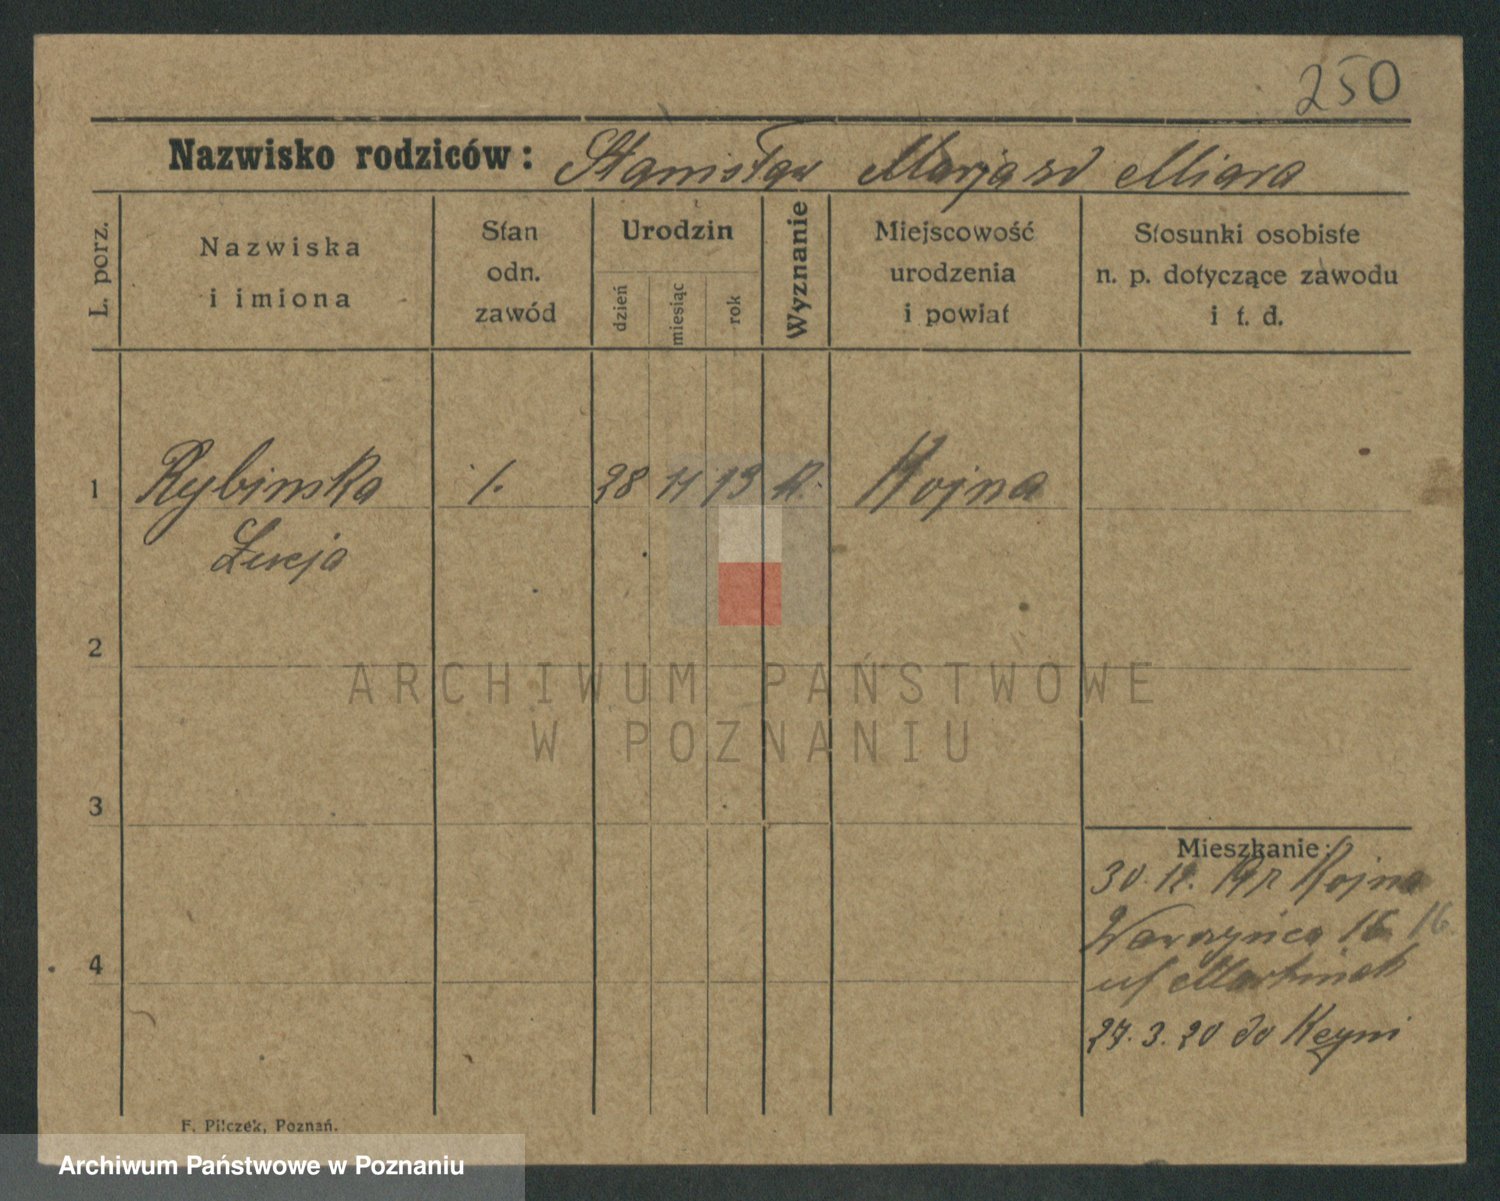 250
Nazwisko rodziców: Stanisław Marja zd Miara
L. porz.
Nazwiska
i imiona
Stan
odn.
zawód
Urodzin
dzień
miesiąc
rok
Wyznanie
Miejscowość
urodzenia
i powiat
Stosunki osobiste
n. p. dotyczące zawodu
i t. d.
1 Rybinska /. 28 11 13 K.
Łucja
2
3
4
Mieszkanie:
30. 12. 19
Wawrzyńca 16 16.
27. 3. 20 do Keyni
F. Pilczek, Poznań.
ARCHIWUM PAŃSTWOWE
W POZNANIU
Archiwum Państwowe w Poznaniu